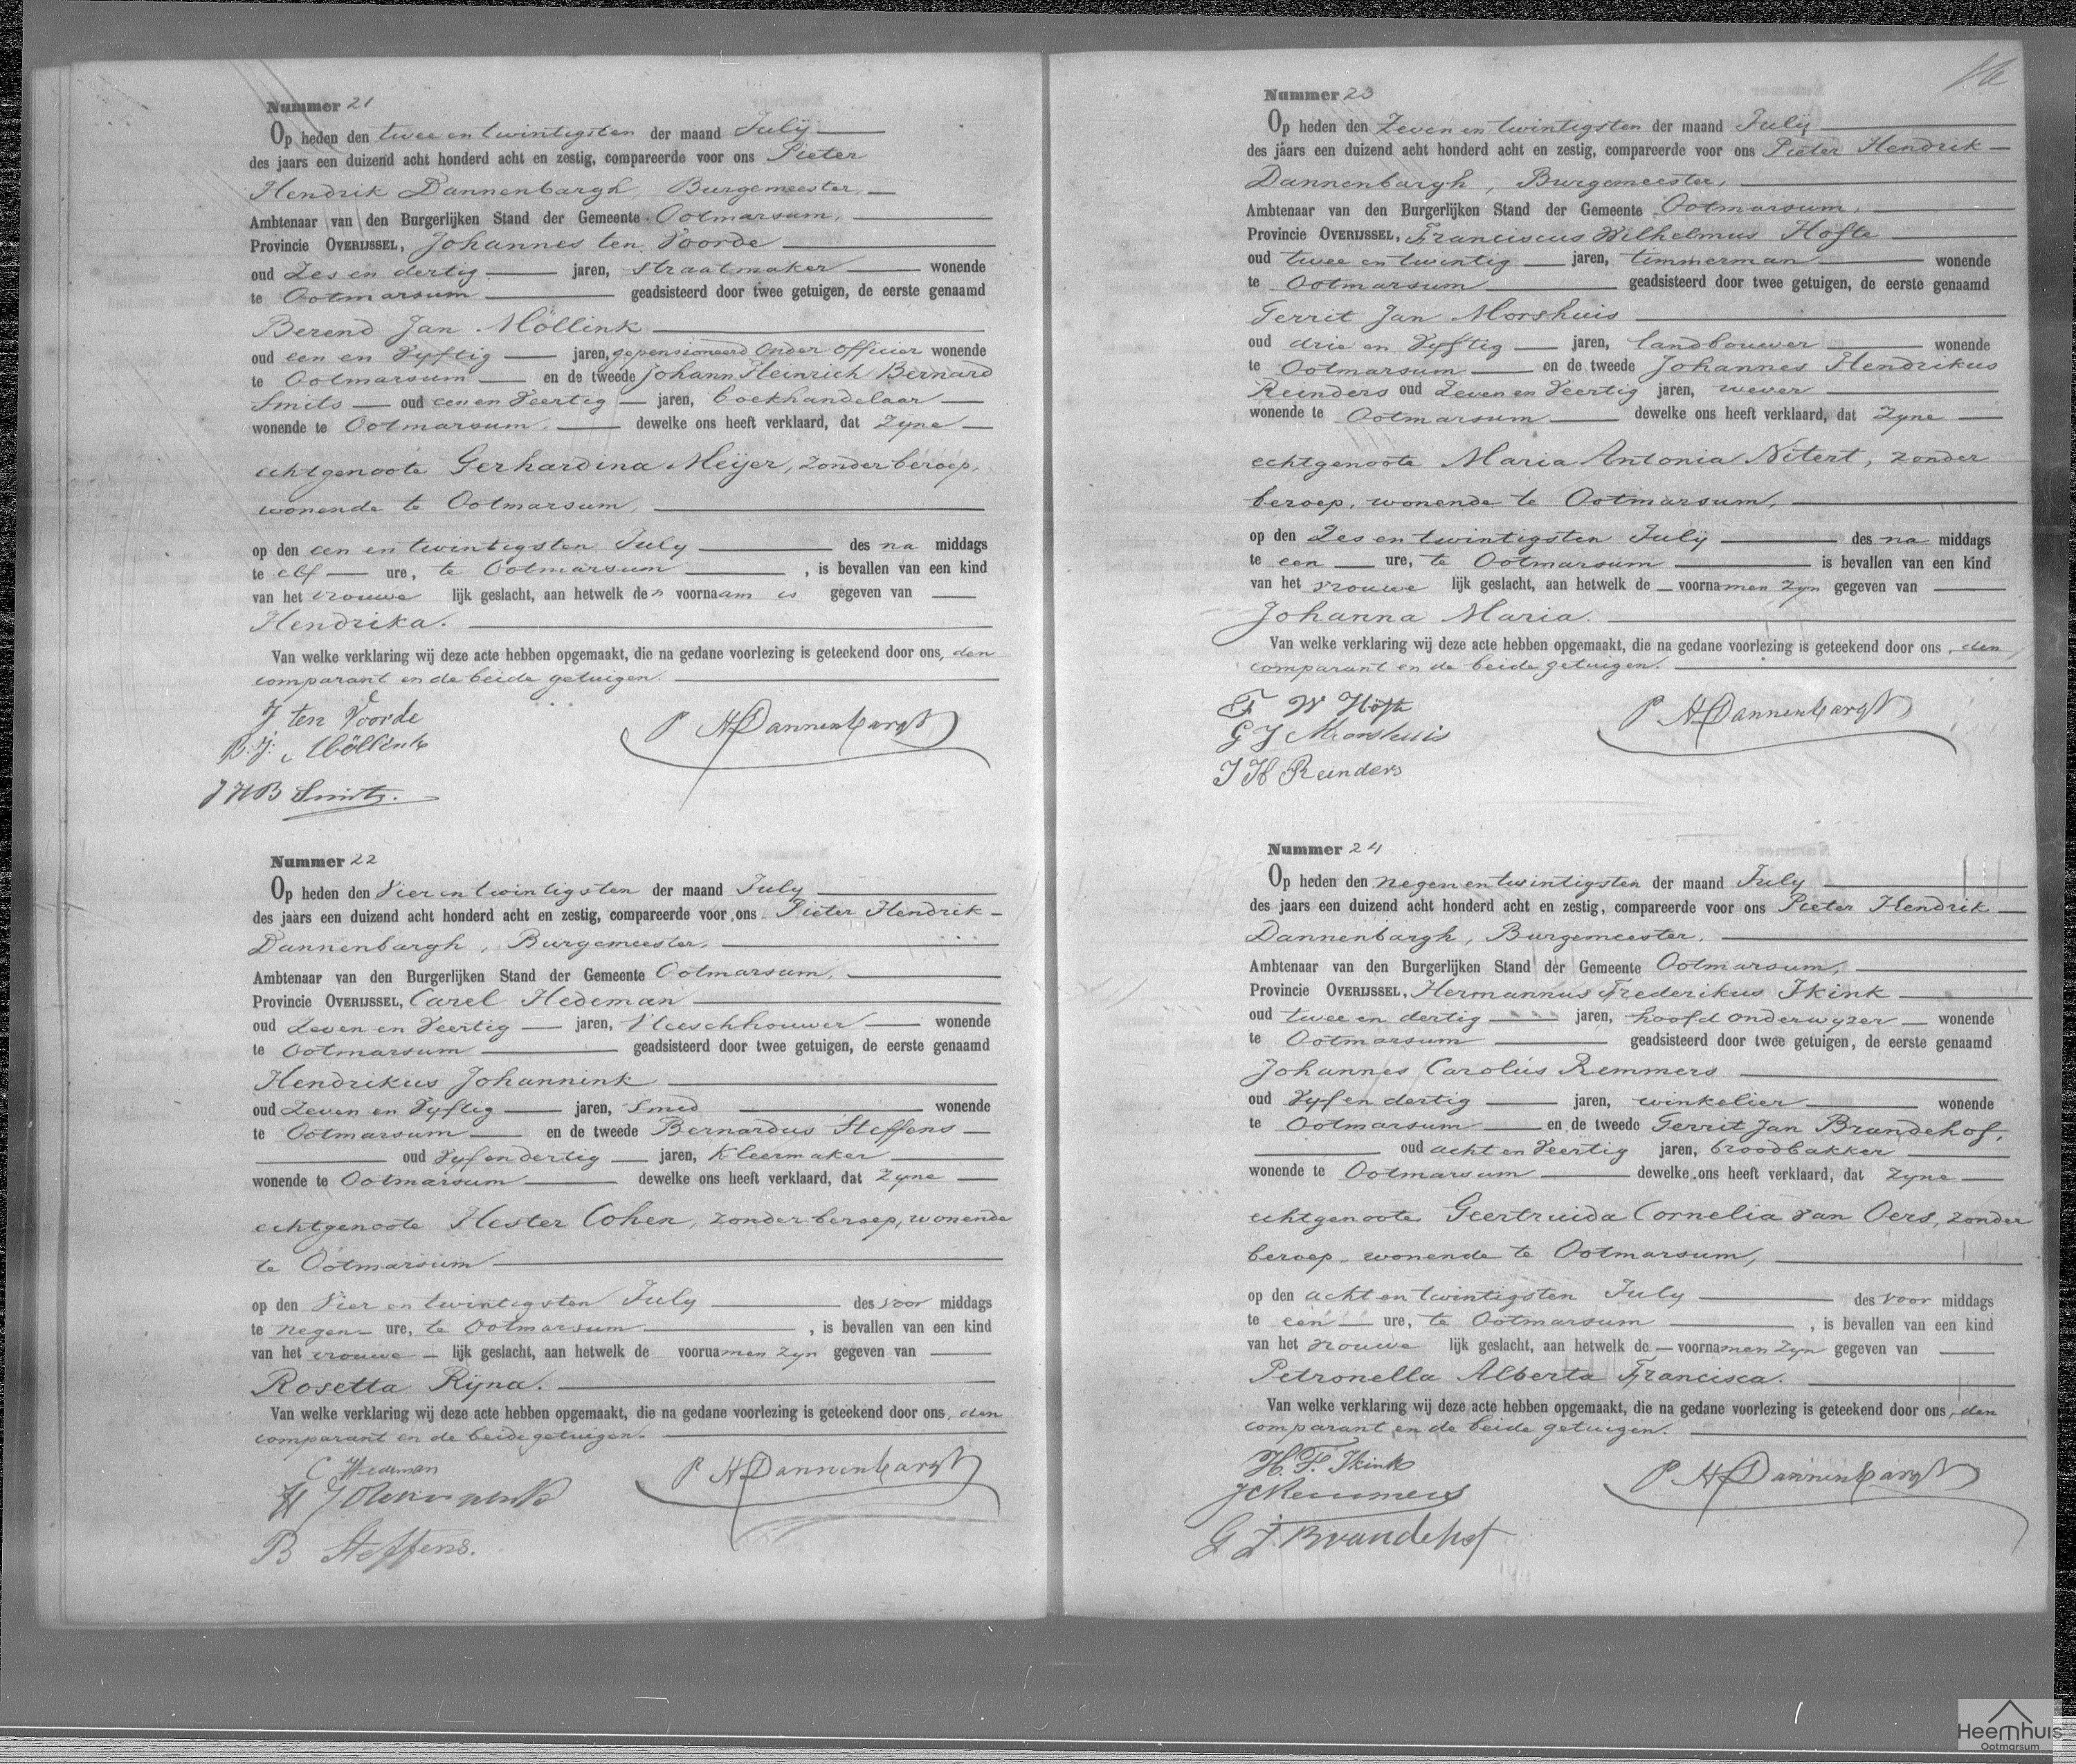 Nummer 21
Op heden den twee en twintigsten der maand July
des jaars een duizend acht honderd acht en zestig, compareerde voor ons Pieter
Hendrik Dannenbargh, Burgemeester,
Ambtenaar van den Burgerlijken Stand der Gemeente Ootmarsum,
Provincie OVERIJSSEL, Johannes ten Voorde
oud Zes en dertig jaren, straatmaker wonende
te Ootmarsum geadsisteerd door twee getuigen, de eerste genaamd
Berend Jan Möllink
oud een en Vyftig jaren, gepensioneerd Onder Officier wonende
te Ootmarsum en de tweede Johann Heinrich Bernard
Smits oud een en Veertig jaren, boekhandelaar
wonende te Ootmarsum, dewelke ons heeft verklaard, dat Zyne
echtgenoote Gerhardina Meijer, zonder beroep,
wonende te Ootmarsum,
op den een en twintigsten July des na middags
te elf ure, te Ootmarsum, is bevallen van een kind
van het vrouwe lijk geslacht, aan hetwelk den voornaam is gegeven van
Hendrika.
Van welke verklaring wij deze acte hebben opgemaakt, die na gedane voorlezing is geteekend door ons, den
comparant en de beide getuigen.
J ten Voorde
P H Dannenbargh
B. J. Möllink
J H B Smits.
Nummer 22
Op heden den Vier en twintigsten der maand July
des jaars een duizend acht honderd acht en zestig, compareerde voor ons Pieter Hendrik
Dannenbargh, Burgemeester,
Ambtenaar van den Burgerlijken Stand der Gemeente Ootmarsum,
Provincie OVERIJSSEL, Carel Hedeman
oud Zeven en Veertig jaren, Vleeschhouwer wonende
te Ootmarsum geadsisteerd door twee getuigen, de eerste genaamd
Hendrikus Johannink
oud Zeven en Vyftig jaren, Smid wonende
te Ootmarsum en de tweede Bernardus Steffens
oud Vyf en dertig jaren, Kleermaker
wonende te Ootmarsum dewelke ons heeft verklaard, dat Zyne
echtgenoote Hester Cohen, zonder beroep, wonende
te Ootmarsum
op den Vier en twintigsten July des voor middags
te negen ure, te Ootmarsum, is bevallen van een kind
van het vrouwe lijk geslacht, aan hetwelk de voornamen zyn gegeven van
Rosetta Rijna.
Van welke verklaring wij deze acte hebben opgemaakt, die na gedane voorlezing is geteekend door ons, den
comparant en de beide getuigen.
C Hedeman
P H Dannenbargh
H Johannink
B Steffens.
Nummer 23
Op heden den Zeven en twintigsten der maand July
des jaars een duizend acht honderd acht en zestig, compareerde voor ons Pieter Hendrik
Dannenbargh, Burgemeester,
Ambtenaar van den Burgerlijken Stand der Gemeente Ootmarsum,
Provincie OVERIJSSEL, Franciscus Wilhelmus Höfte
oud twee en twintig jaren, timmerman wonende
te Ootmarsum geadsisteerd door twee getuigen, de eerste genaamd
Gerrit Jan Morshuis
oud drie en Vyftig jaren, landbouwer wonende
te Ootmarsum en de tweede Johannes Hendrikus
Reinders oud Zeven en Veertig jaren, wever
wonende te Ootmarsum dewelke ons heeft verklaard, dat Zyne
echtgenoote Maria Antonia Nitert, zonder
beroep, wonende te Ootmarsum,
op den Zes en twintigsten July des na middags
te een ure, te Ootmarsum is bevallen van een kind
van het vrouwe lijk geslacht, aan hetwelk de voornamen zyn gegeven van
Johanna Maria.
Van welke verklaring wij deze acte hebben opgemaakt, die na gedane voorlezing is geteekend door ons, den
comparant en de beide getuigen.
F W Höfte
P H Dannenbargh
G J Morshuis
J H Reinders
Nummer 24
Op heden den negen en twintigsten der maand July
des jaars een duizend acht honderd acht en zestig, compareerde voor ons Pieter Hendrik
Dannenbargh, Burgemeester,
Ambtenaar van den Burgerlijken Stand der Gemeente Ootmarsum,
Provincie OVERIJSSEL, Hermannus Frederikus Ikink
oud twee en dertig jaren, hoofd onderwyzer wonende
te Ootmarsum geadsisteerd door twee getuigen, de eerste genaamd
Johannes Carolus Remmers
oud Vyf en dertig jaren, winkelier wonende
te Ootmarsum en de tweede Gerrit Jan Brandehof,
oud acht en Veertig jaren, broodbakker
wonende te Ootmarsum dewelke ons heeft verklaard, dat Zyne
echtgenoote Geertruida Cornelia van Oers, zonder
beroep, wonende te Ootmarsum,
op den acht en twintigsten July des voor middags
te één ure, te Ootmarsum, is bevallen van een kind
van het vrouwe lijk geslacht, aan hetwelk de voornamen zyn gegeven van
Petronella Alberta Francisca.
Van welke verklaring wij deze acte hebben opgemaakt, die na gedane voorlezing is geteekend door ons, den
comparant en de beide getuigen.
H. F. Ikink
P H Dannenbargh
J C Remmers
G J Brandehof
Heemhuis
Ootmarsum